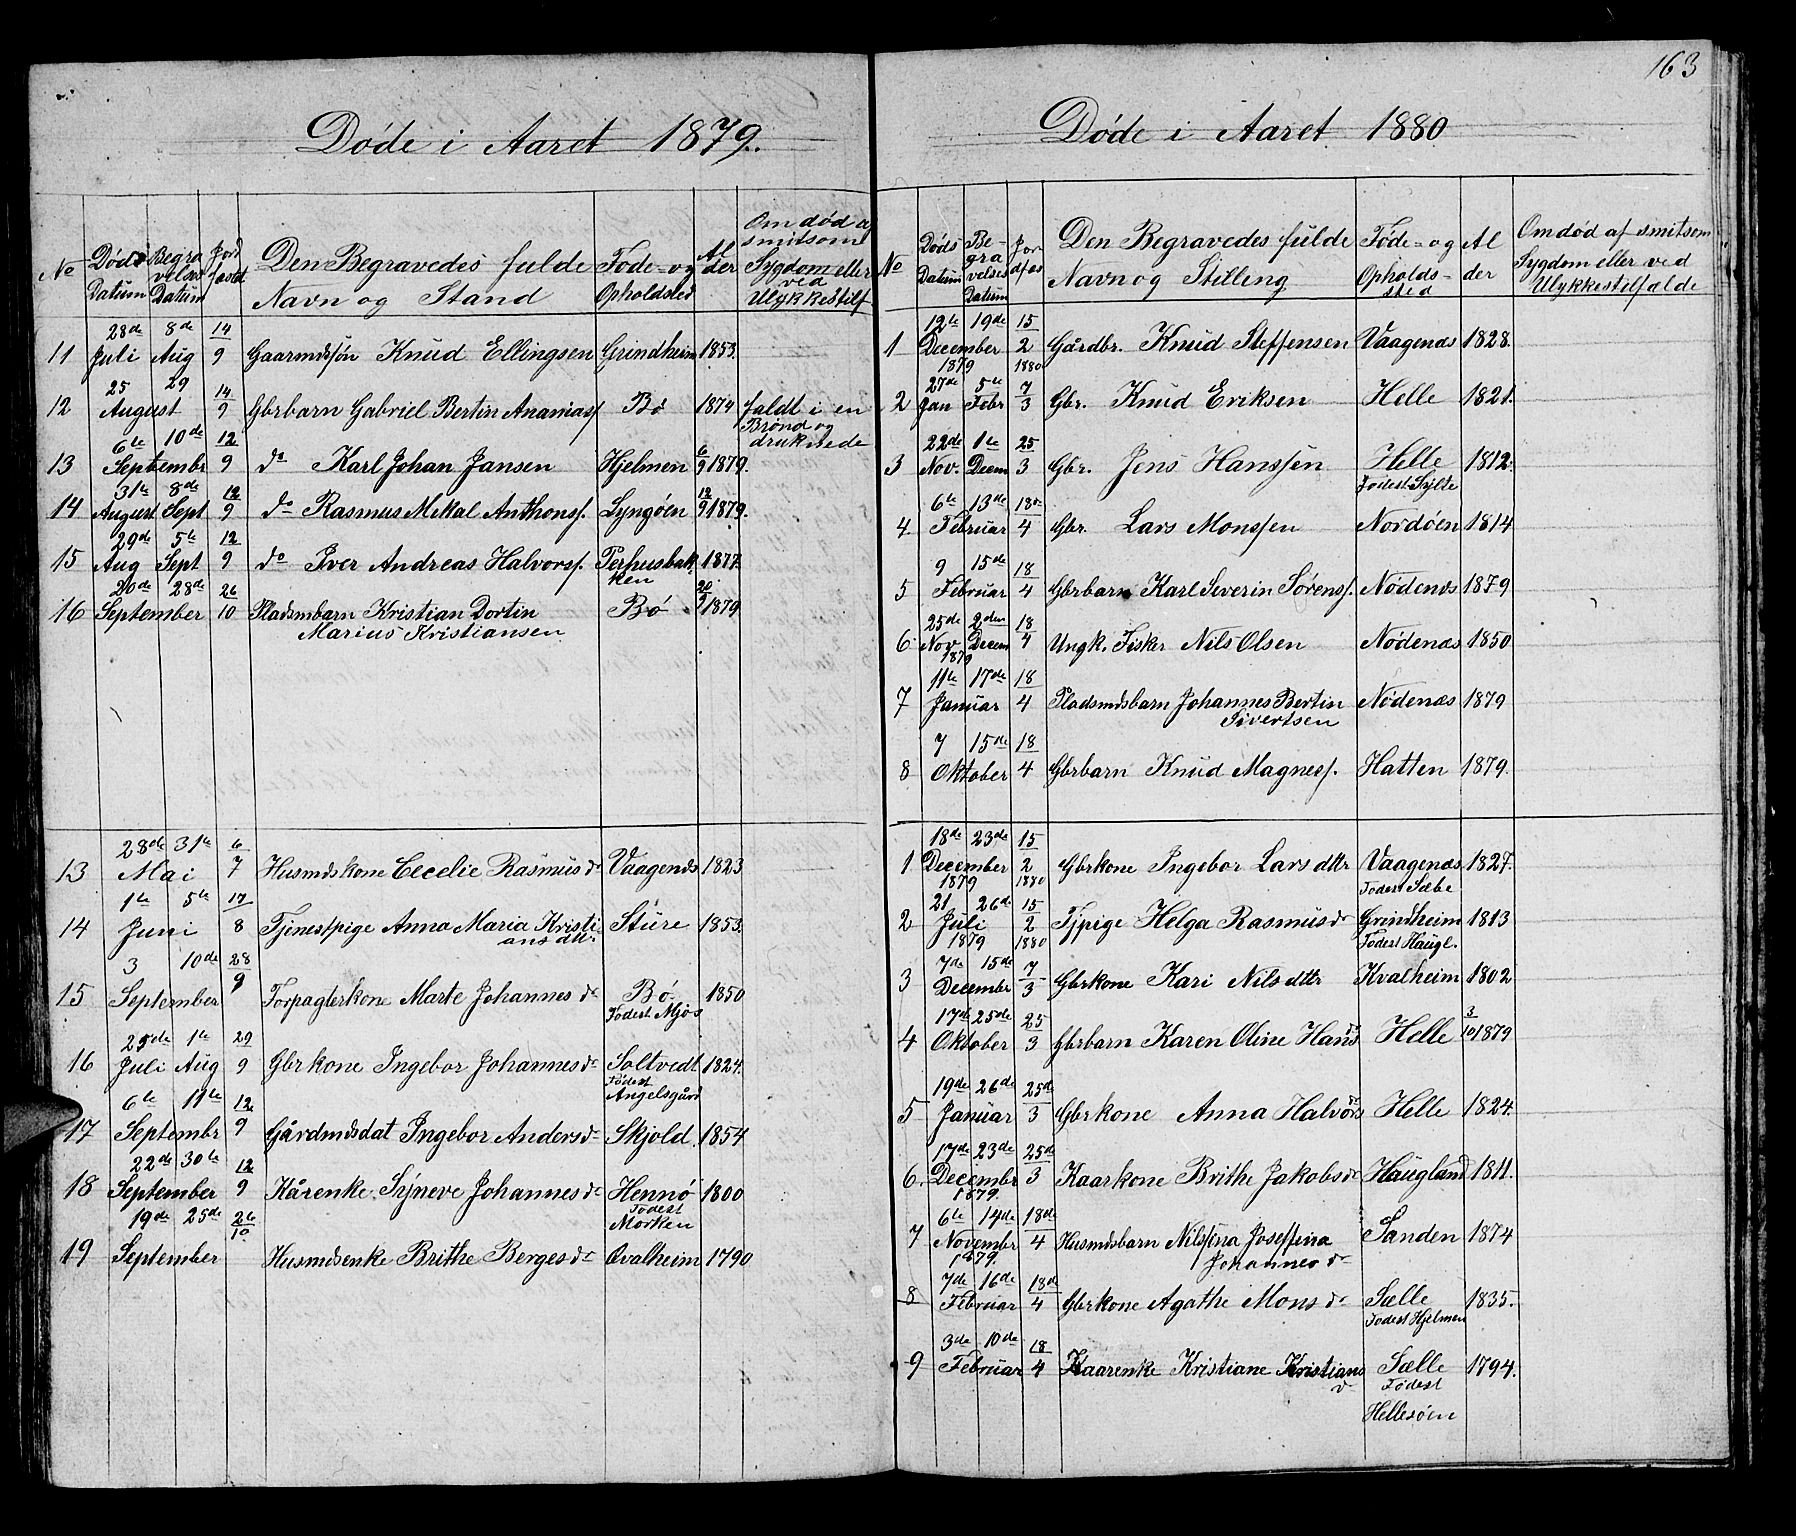 Døde i Aaret 1879.
No Døds Datum Begravelses Datum Jordfæst Den Begravedes fulde Navn og Stand Føde- og Opholdsted Alder Om død af smitsom Sygdom eller ved Ulykkestilf
11 28de Juli 8de Aug 14/9 Gaarmdsøn Knud Ellingsen Grindheim 1853.
12 25 29 August 14/9 Gbrbarn Gabriel Bertin Ananiasf. Bø 1874 faldt i en Brønd og druknede
13 6te 10de Septembr 12/9 do Karl Johan Jansen Hjelmen 6/9 1879.
14 31te August 8de Sept 12/9 do Rasmus Mikal Anthonsf. Lyngøen 12/9 1879.
15 29de Aug 5te Sept 12/9 do Iver Andreas Halvorsf. Perhusbakken 1877.
16 20de 28de September 26/10 Pladsmbarn Kristian Dortin Bø 20/9 1879
Marius Kristiansen
13 28de 31te Mai 6/7 Husmdskone Cecelie Rasmusdr Vaagenæs 1823
14 1te 5te Juni 17/8 Tjenestpige Anna Maria Kristiansdtr. Sture 1853.
15 3 10de September 28/9 Forpagterkone Marte Johannesdr Bø. Fødest Mjøs 1850
16 25de Juli 1te Aug 29/9 Gbrkone Ingebor Johannesdr Soltvedt Fødest Angelsgård 1824.
17 6te 11te Septembr 12/9 Gårdmdsdat Ingebor Andersdr Skjold 1854
18 22de 30te September 12/9 Kårenke. Syneve Johannesdr Hennø Fødest Morken 1800
19 19de 25de September 26/10 Husmdsenke Brithe Bergesdr Qvalheim 1790
163
Døde i Aaret 1880
No Døds Datum Begravelses Datum Jordfæs Den Begravedes fulde Navn og Stilling Føde- og Opholdssted Alder Om død af smitsom Sygdom eller ved Ulykkestilfælde
1 12te 19de December 1879 15/2 1880 Gårdbr. Knud Steffensen Vaagenæs 1828.
2 27de Jan 5te Febr 7/3 Gbr. Knud Eriksen Helle 1821.
3 22de Nov. 1te Decem 25/3 Gbr. Jens Hanssen Helle Fødest Sylte 1812.
4 6te 13de Februar 18de/4 Gbr. Lars Monssen Nordøen 1814
5 9 15de Februar 18/4 Gbrbarn Karl Severin Sørensf. Nødenæs 1879
6 25de Nov 1879 2den Decem 18/4 Ungk. Fisker Nils Olsen Nødenæs 1850
7 11te 17de Januar 18/4 Pladsmdsbarn Johannes Bertin Sivertsen Nødenæs 1879
8 7 15de Oktober 18/4 Gbrbarn Knud Magnesf. Hatten 1879.
1 18de 23de December 1879 15/2 1880 Gbrkone Ingebor Larsdttr Vaagenæs Fødest Sæbe 1827.
2 21 26de Juli 1879 15/2 1880 Tjpige Helga Rasmusdr Grindheim Fødest Haugl. 1813
3 7de 15de December 7/3 Gbrkone Kari Nilsdttr Kvalheim 1802
4 17de 25de Oktober 25/3 Gbrbarn Karen Oline Hansdr Helle 3/10 1879
5 19de 26de Januar 25de/3 Gbrkone Anna Halvorsdr Helle 1824.
6. 17de 23de Decembr 1879. 25de/3 Kaarkone Brithe Jakobsdr Haugland 1811.
7 6te 14de Novembr 1879. 18de/4 Husmdsbarn Nilsina Joseffina Johannesdr Sanden 1874
8 7de 16de Februar 18de/4 Gbrkone Agathe Monsdr Sælle Fødest Hjelmen 1835.
9 3de 10de Februar 18/4 Kaarenke Kristiane Kristiansdr Sælle Fødest Hellesøen 1794.